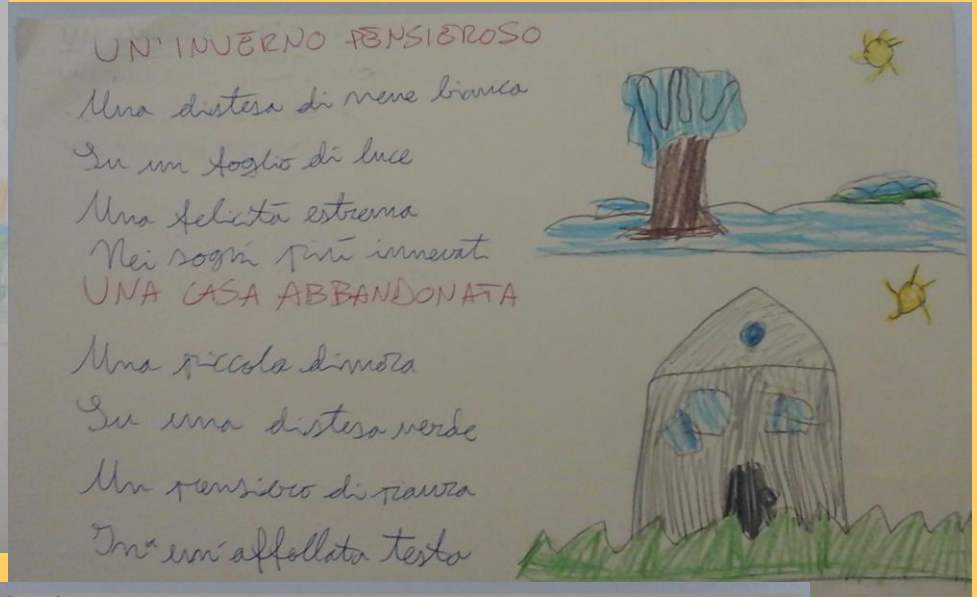 UN'INVERNO PENSIEROSO
Una distesa di neve bianca
Su un foglio di luce
Una felicità estrema
Nei sogni più innevati
UNA CASA ABBANDONATA
Una piccola dimora
Su una distesa verde
Un pensiero di paura
In un'affollata testa